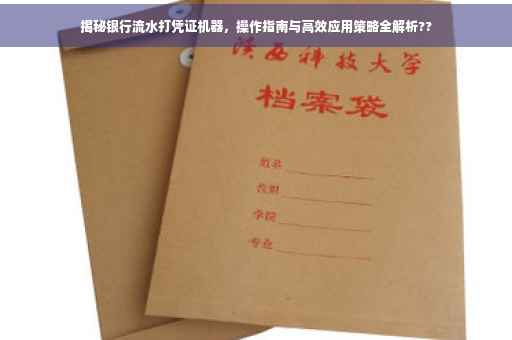 揭秘银行流水打凭证机器，操作指南与高效应用策略全解析??
陕西科技大学
档案袋
姓名
学院
专业